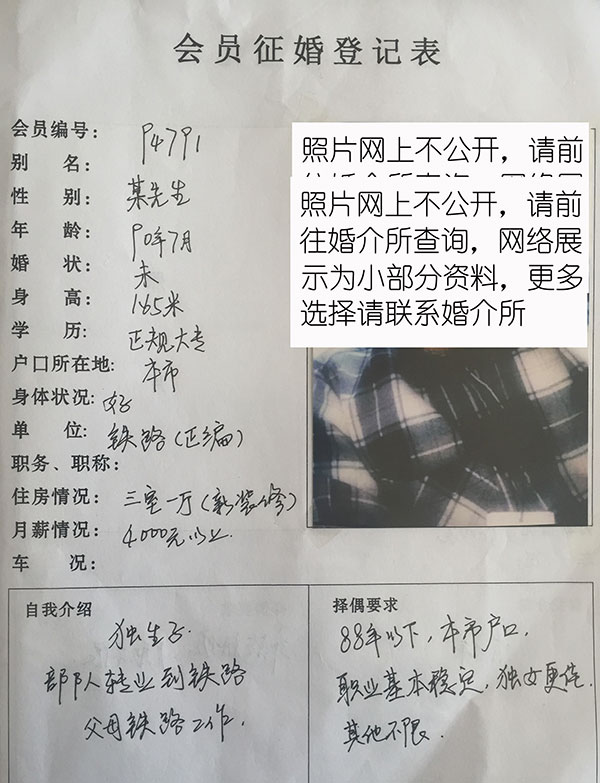 会员征婚登记表
会员编号: P4791
别 名:
性 别: 某先生
年 龄: 90年7月
婚 状: 未
身 高: 1.65米
学 历: 正规大专
户口所在地: 本市
身体状况: 好
单 位: 铁路(正编)
职务、职称:
住房情况: 三室一厅(新装修)
月薪情况: 4000元以上
车 况:
照片网上不公开，请前
照片网上不公开，请前
往婚介所查询，网络展
示为小部分资料，更多
选择请联系婚介所
自我介绍
独生子.
部队转业到铁路
父母铁路工作.
择偶要求
88年以下，本市户口.
职业基本稳定，独女更佳
其他不限.